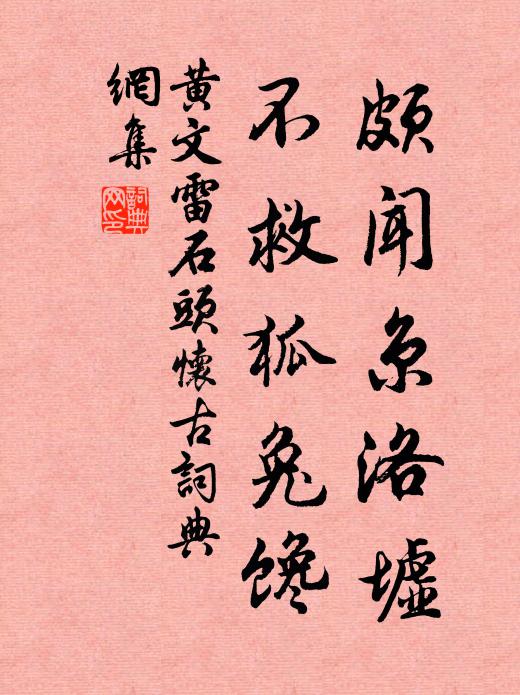 頗聞京洛墟
不救狐兔馋
黃文雷石頭懷古詞典
網集
詞典
网印